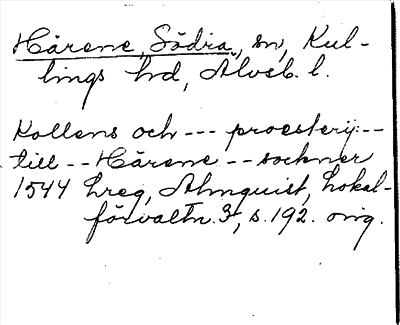 Härene, Södra, sn, Kul-
lings hd, Älvsb. l.
Kollens och --- proesterij:--
till -- Härene -- sockner
1544 Lreg, Almquist, Lokal-
förvaltn. 3, s. 192. orig.